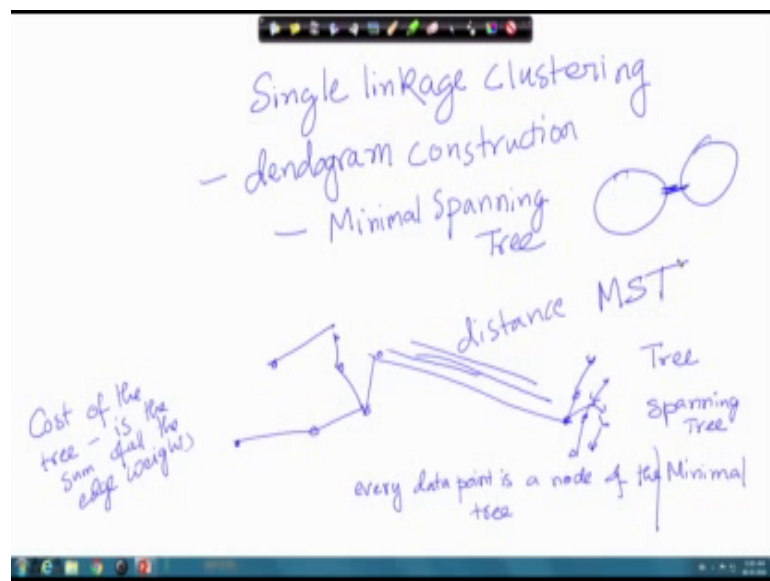 Single linkage clustering
- dendogram construction
- Minimal Spanning
Tree
distance MST
Tree
Spanning
Tree
Minimal
Cost of the
tree - is the
sum of all the
edge weights
every data point is a node of the
tree